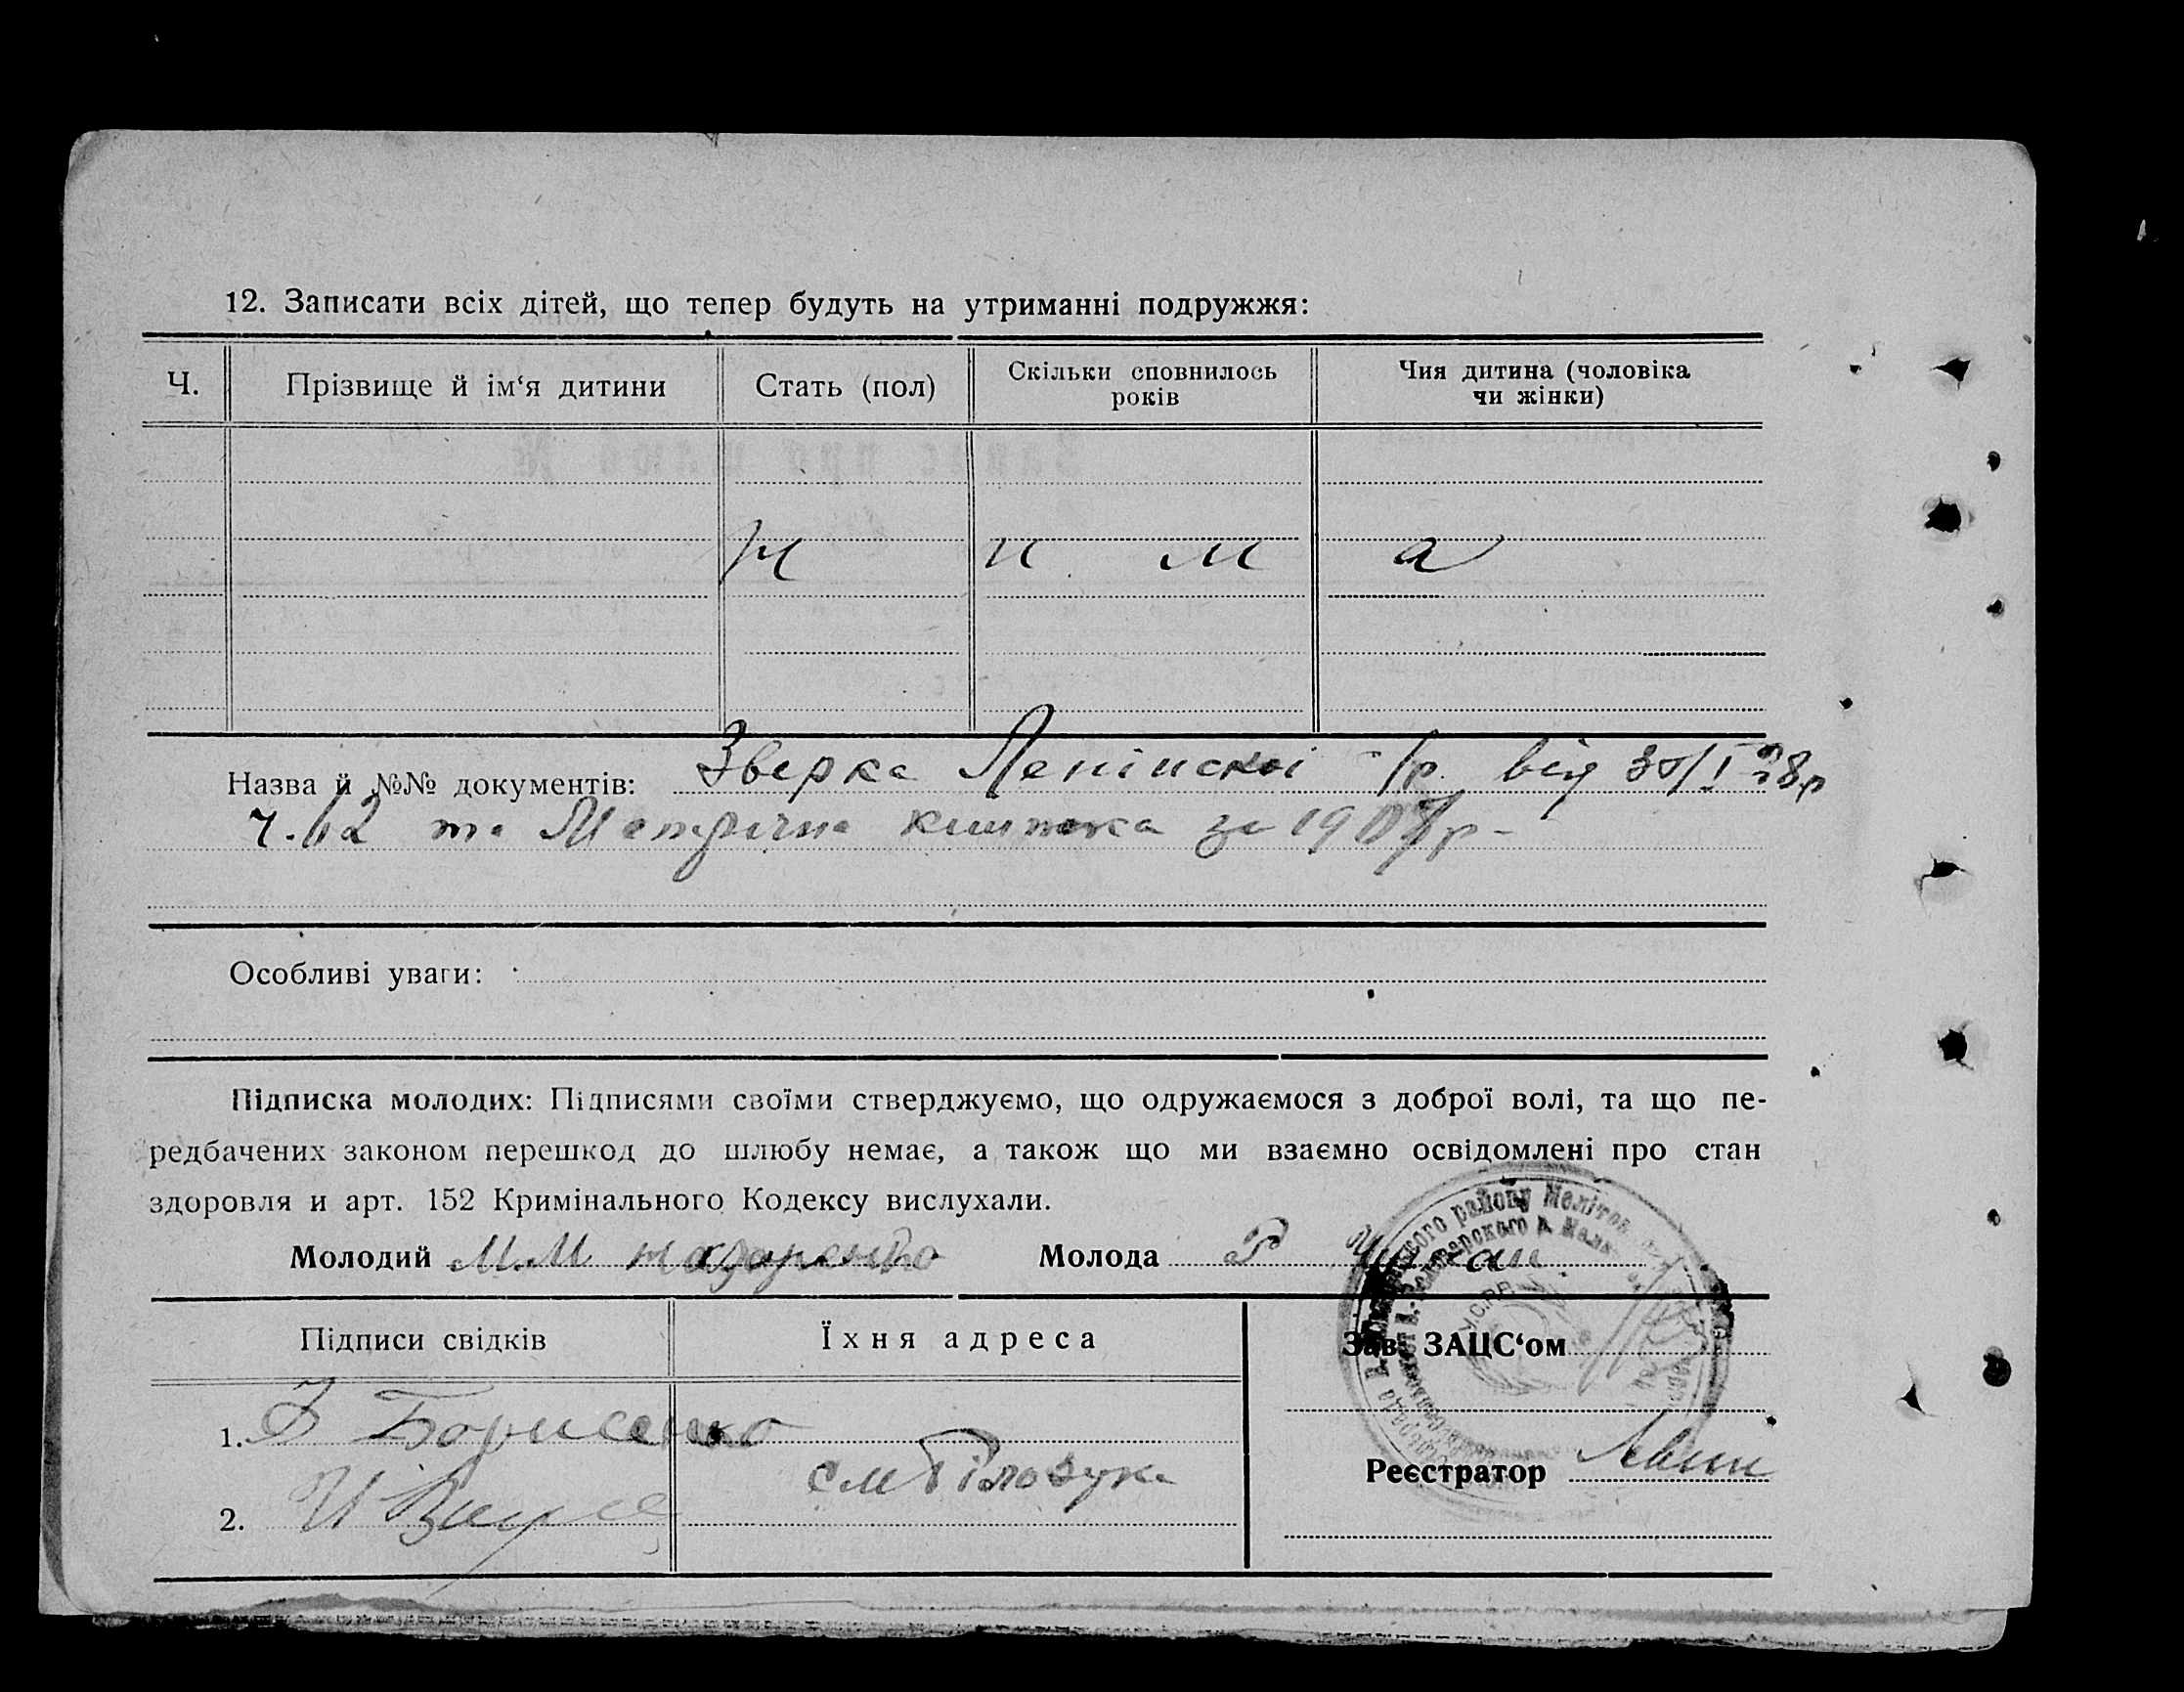 12. Записати всіх дітей, що тепер будуть на утриманні подружжя:
Ч.
Прізвище й ім‘я дитини
Стать (пол)
Скільки сповнилось років
Чия дитина (чоловіка чи жінки)
Н и м а
Назва й №№ документів: Зверка Ленінскоі с/р. від 30/I 28р
ч. 62 та Метрична книжка за 1907р -
Особливі уваги:
Підписка молодих: Підписями своїми стверджуємо, що одружаємося з доброї волі, та що пе-
редбачених законом перешкод до шлюбу немає, а також що ми взаємно освідомлені про стан
здоровля и арт. 152 Кримінального Кодексу вислухали.
Молодий М.М Молода Р
Підписи свідків
Їхня адреса
Зав. ЗАЦС‘ом
1. Борисенко
2. И
Реєстратор
району Меліто
УСРР